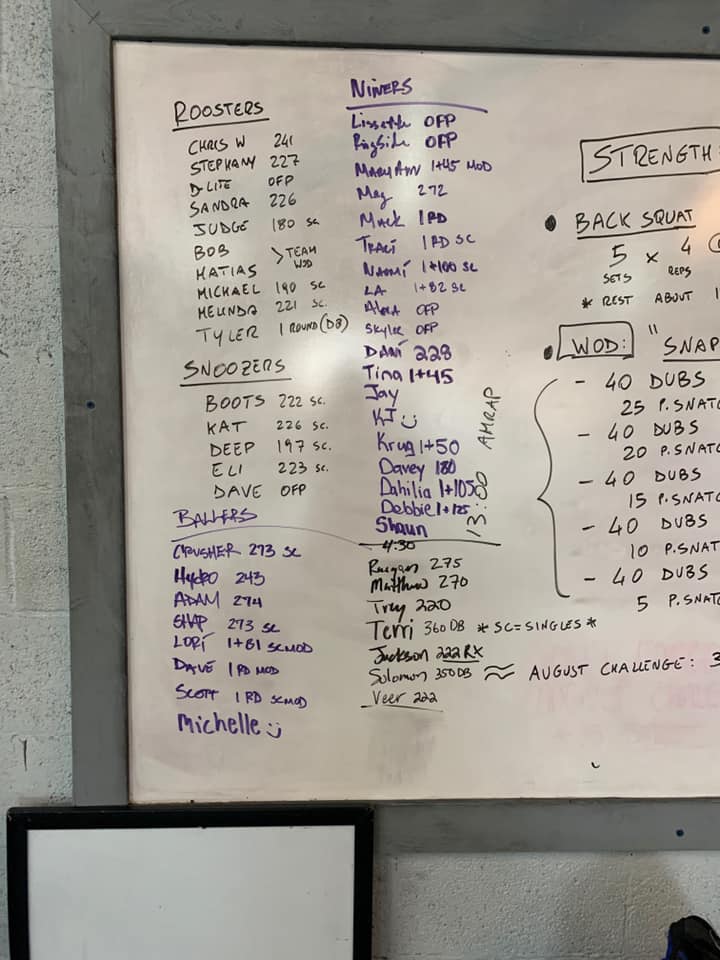 ROOSTERS
CHRIS W 241
STEPHANY 227
D-LITE OFP
SANDRA 226
JUDGE 180 SC
BOB
MATIAS
> TEAM
WOD
MICHAEL 190 SC
MELINDA 221 SC.
TYLER 1 ROUND (DB)
SNOOZERS
BOOTS 222 SC.
KAT 226 SC.
DEEP 197 SC.
ELI 223 SC.
DAVE OFP
BALLERS
CRUSHER 273 SC
Hydro 243
ADAM 274
SHAP 273 SC
LORI 1+81 SCMOD
DAVE 1 RD MOD
SCOTT 1 RD SCMOD
Michelle
NINERS
Lissette OFP
Ringside OFP
MARYANN 1+45 MOD
Meg 272
Mack 1 RD
TRACI 1 RD SC
NAOMI 1+100 SC
LA 1+82 SC
Alexa OFP
Skyler OFP
DANI 228
Tina 1+45
Jay
KJ
Krug 1+50
Davey 180
Dahilia 1+105
Debbie 1+125
Shaun
13:00 AMRAP
4:30
Raegan 275
Matthew 270
Trey 220
Terri 360 DB * SC = SINGLES *
Jackson 222 RX
Solomon 350 DB
Veer 222
STRENGTH
BACK SQUAT
5 x 4
SETS REPS
* REST ABOUT 1
WOD: " SNAP
- 40 DUBS
25 P. SNATC
- 40 DUBS
20 P. SNATC
- 40 DUBS
15 P. SNATC
- 40 DUBS
10 P. SNAT
- 40 DUBS
5 P. SNAT
AUGUST CHALLENGE: 3